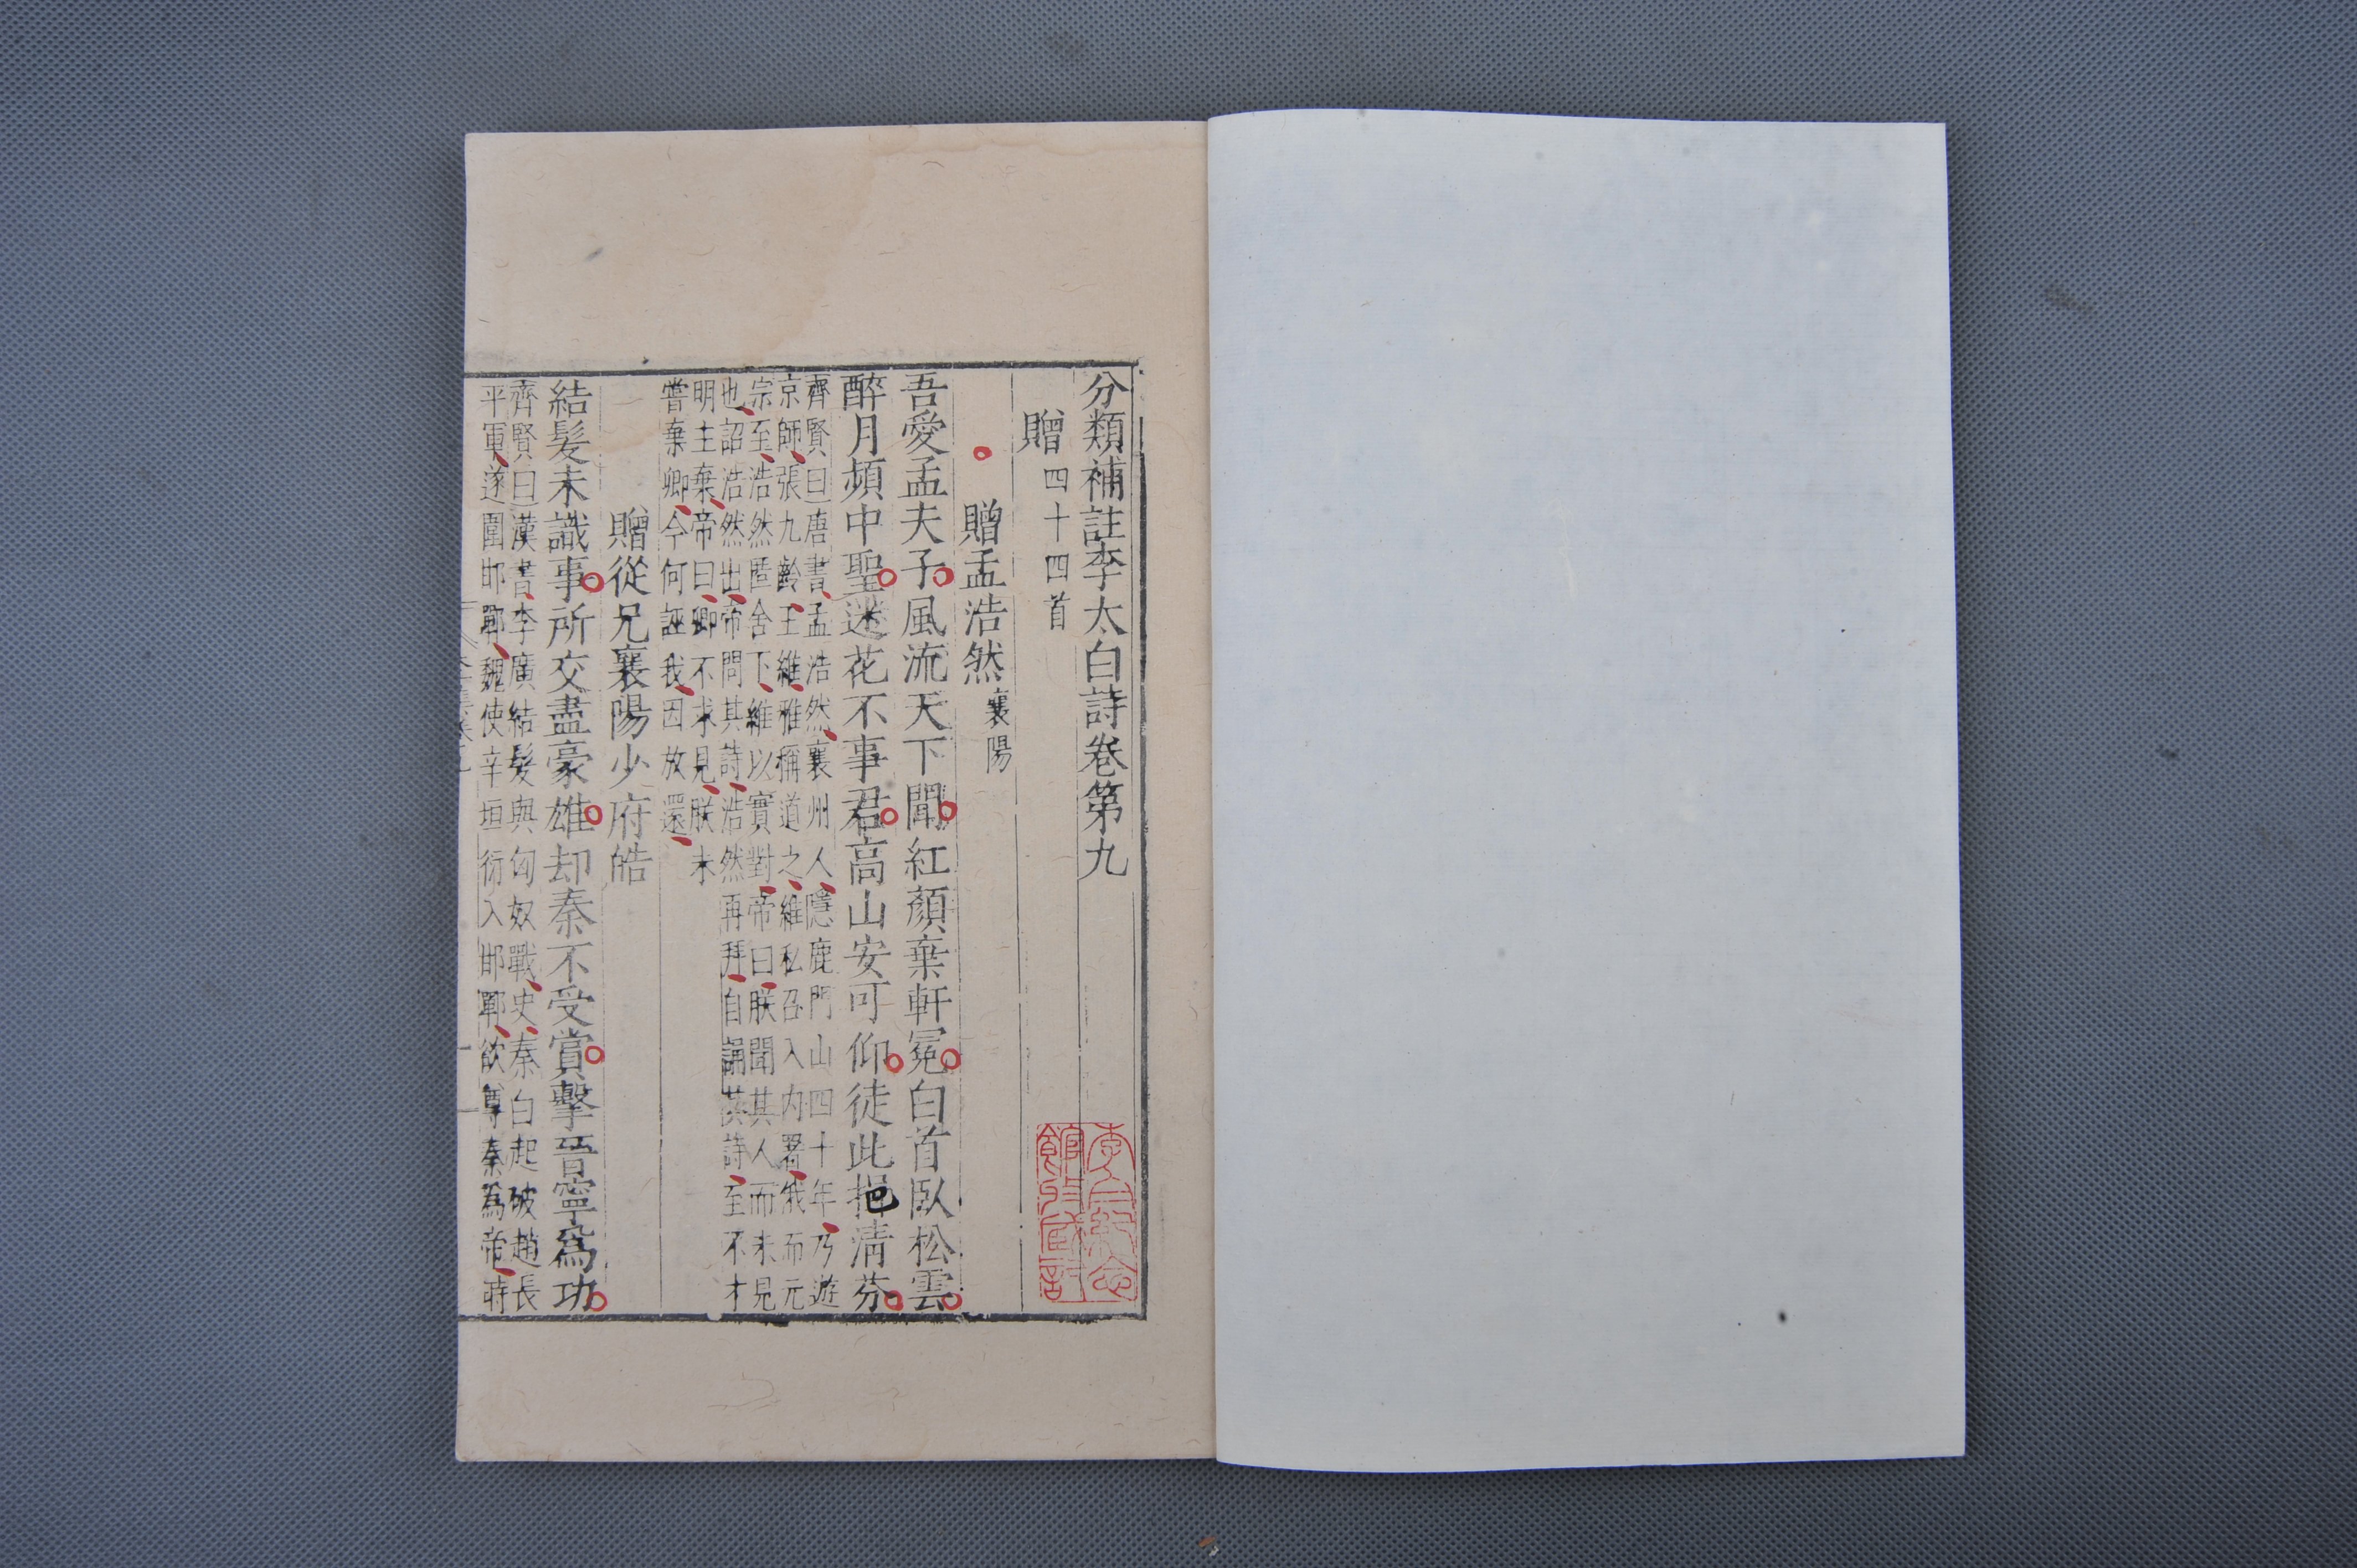 分類補註李太白詩卷第九
贈四十四首
贈孟浩然襄陽
吾愛孟夫子風流天下聞紅顏棄軒冕白首臥松雲
醉月頻中聖迷花不事君高山安可仰徒此揖清芬
齊賢曰唐書孟浩然襄州人隱鹿門山四十年乃遊
京師張九齡王維雅稱道之維私召入內署俄而元
宗至浩然匿舍下維以實對帝曰朕聞其人而未見
也詔浩然出帝問其詩浩然再拜自誦其詩至不才
明主棄帝曰卿不求見朕未
嘗棄卿今何誣我因放還
贈從兄襄陽少府皓
結髮未識事所交盡豪雄却秦不受賞擊晉寧為功
齊賢曰漢書李廣結髮與匈奴戰史秦白起破趙長
平軍遂圍邯鄲魏使辛垣衍入邯鄲欲尊秦為帝時